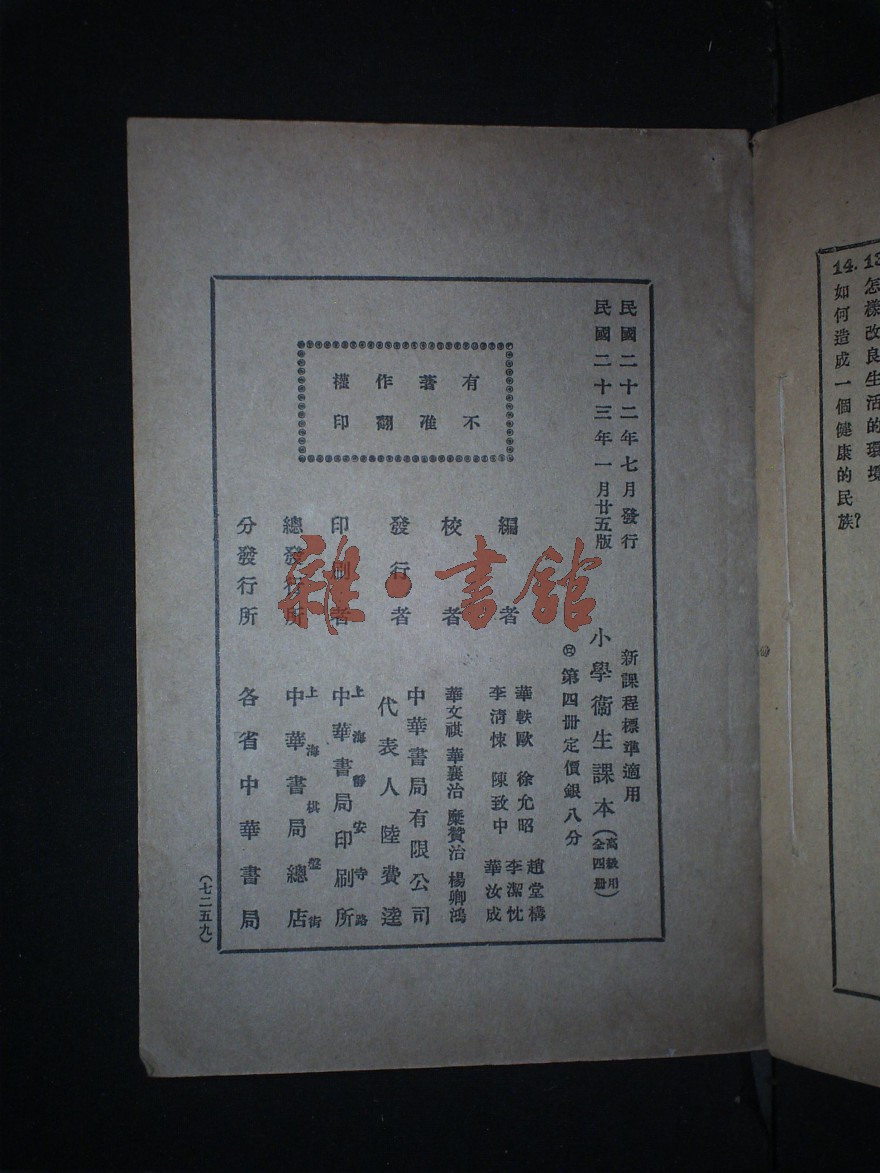 民國二十二年七月發行
民國二十三年一月廿五版
新課程標準適用
小學衞生課本（高級用全四冊）
第四冊定價銀八分
有著作權
不准翻印
編者
華軼歐 徐允昭 趙堂構
李清悚 陳致中 李潔忱
華汝成
校者
華文祺 華襄治 糜贊治 楊卿鴻
發行者
中華書局有限公司
代表人 陸費逵
印刷者
上海靜安寺路
中華書局印刷所
總發行所
上海棋盤街
中華書局總店
分發行所
各省中華書局
（七二五九）
雜·書館
13
怎樣改良生活的環境
14.如何造成一個健康的民族？